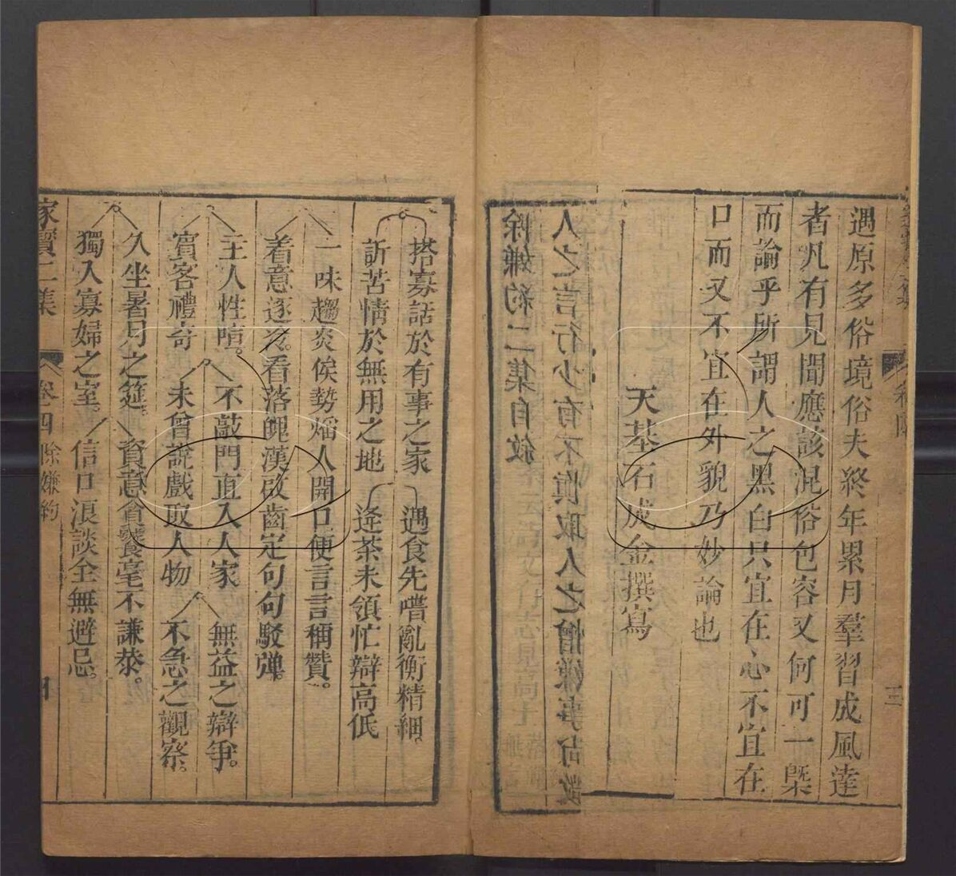 遇原多俗境俗夫終年累月羣習成風達
者凡有見聞應該混俗包容又何可一槩
而論乎所謂人之黑白只宜在心不宜在
口而又不宜在外貌乃妙論也
天基石成金撰寫
除嫌約二集自敘
人之言行少有不慎取人之憎嫌事尙
搭寡話於有事之家 遇食先嚐亂衡精細
訴苦情於無用之地 逢茶未領忙辯高低
一味趨炎俟勢熖人開口便言言稱贊
着意逐 看落魄漢啟齒定句句駁弹
主人性 不敲門直入人家 無益之辯爭
賓客禮 未曾說戲取人物 不急之觀察
久坐暑月之筵 資意貪餮毫不謙恭
獨入寡婦之室 信口浪談全無避忌
家寶二集 卷四 除嫌約 四